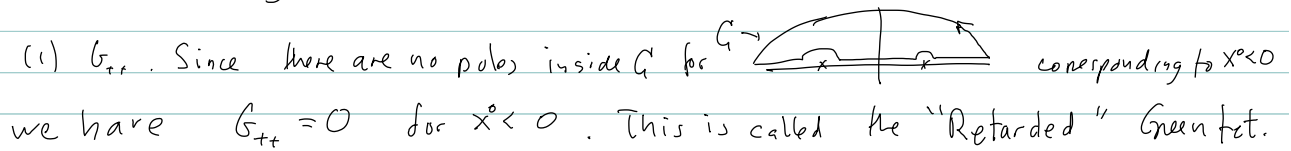 (1) G₊₊. Since there are no poles inside G for G → corresponding to x⁰<0
we have G₊₊ = 0 for x⁰ < 0. This is called the "Retarded" Green fct.